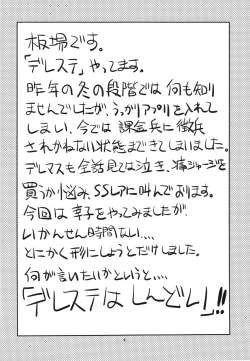 板場です。
「デレステ」やってます。
昨年の冬の段階では何も知り
ませんでしたが、うっかりアプリを入れて
しまい、今では課金兵に徴兵
されかねない状態まできてしまいました。
デレマスも全話見ては泣き、痛ジャージを
買うか悩み、SSレアに叫んでおります。
今回は幸子をやってみましたが、
いかんせん時間ない、、、
とにかく形にしようとだけしました。
何が言いたいかというと、、、
「デレステはしんどい」!!
4